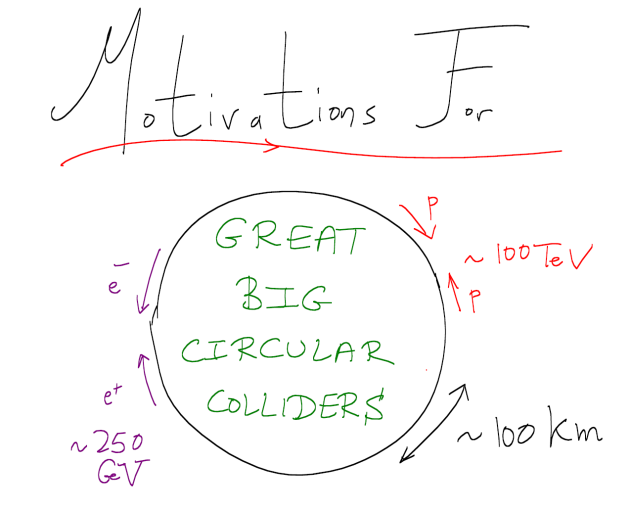 Motivations For
GREAT
BIG
CIRCULAR
COLLIDERS
e⁻
e⁺
~250
GeV
p
~100 TeV
p
~100 km